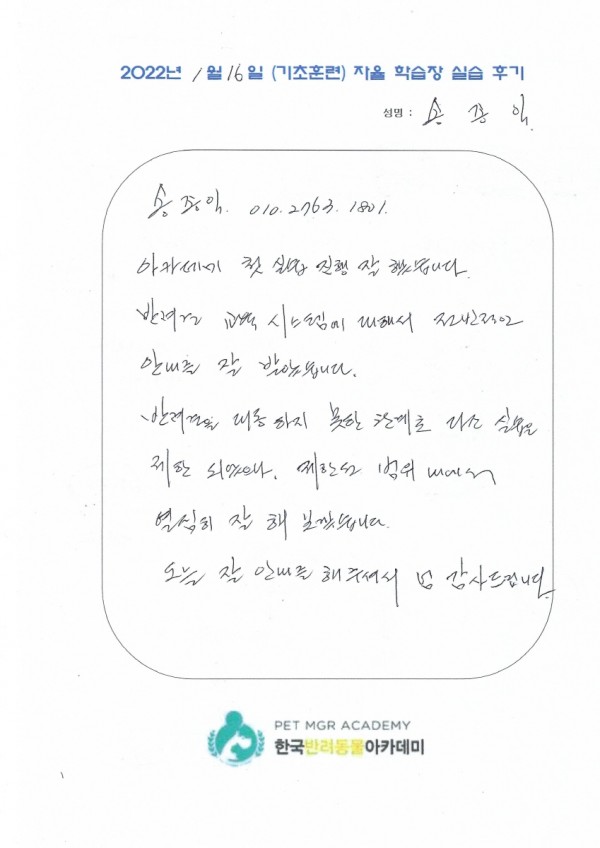 2022년 1월 16일 (기초훈련) 자율 학습장 실습 후기
성명 : 송 종 익
송종익. 010.2763.1801.
아카데미 첫 실습 진행 잘 했습니다.
반려견 교육 시스템에 대해서 전반적인
안내를 잘 받았습니다.
반려견을 대동하지 못한 관계로 다소 실습을
제한 되었으나, 제한된 범위 내에서
열심히 잘 해 보았습니다.
오늘 잘 안내를 해주셔서 넘 감사드립니다.
PET MGR ACADEMY
한국반려동물아카데미